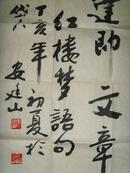 達即文章
红楼梦語句
丁亥年初夏於
安廷山